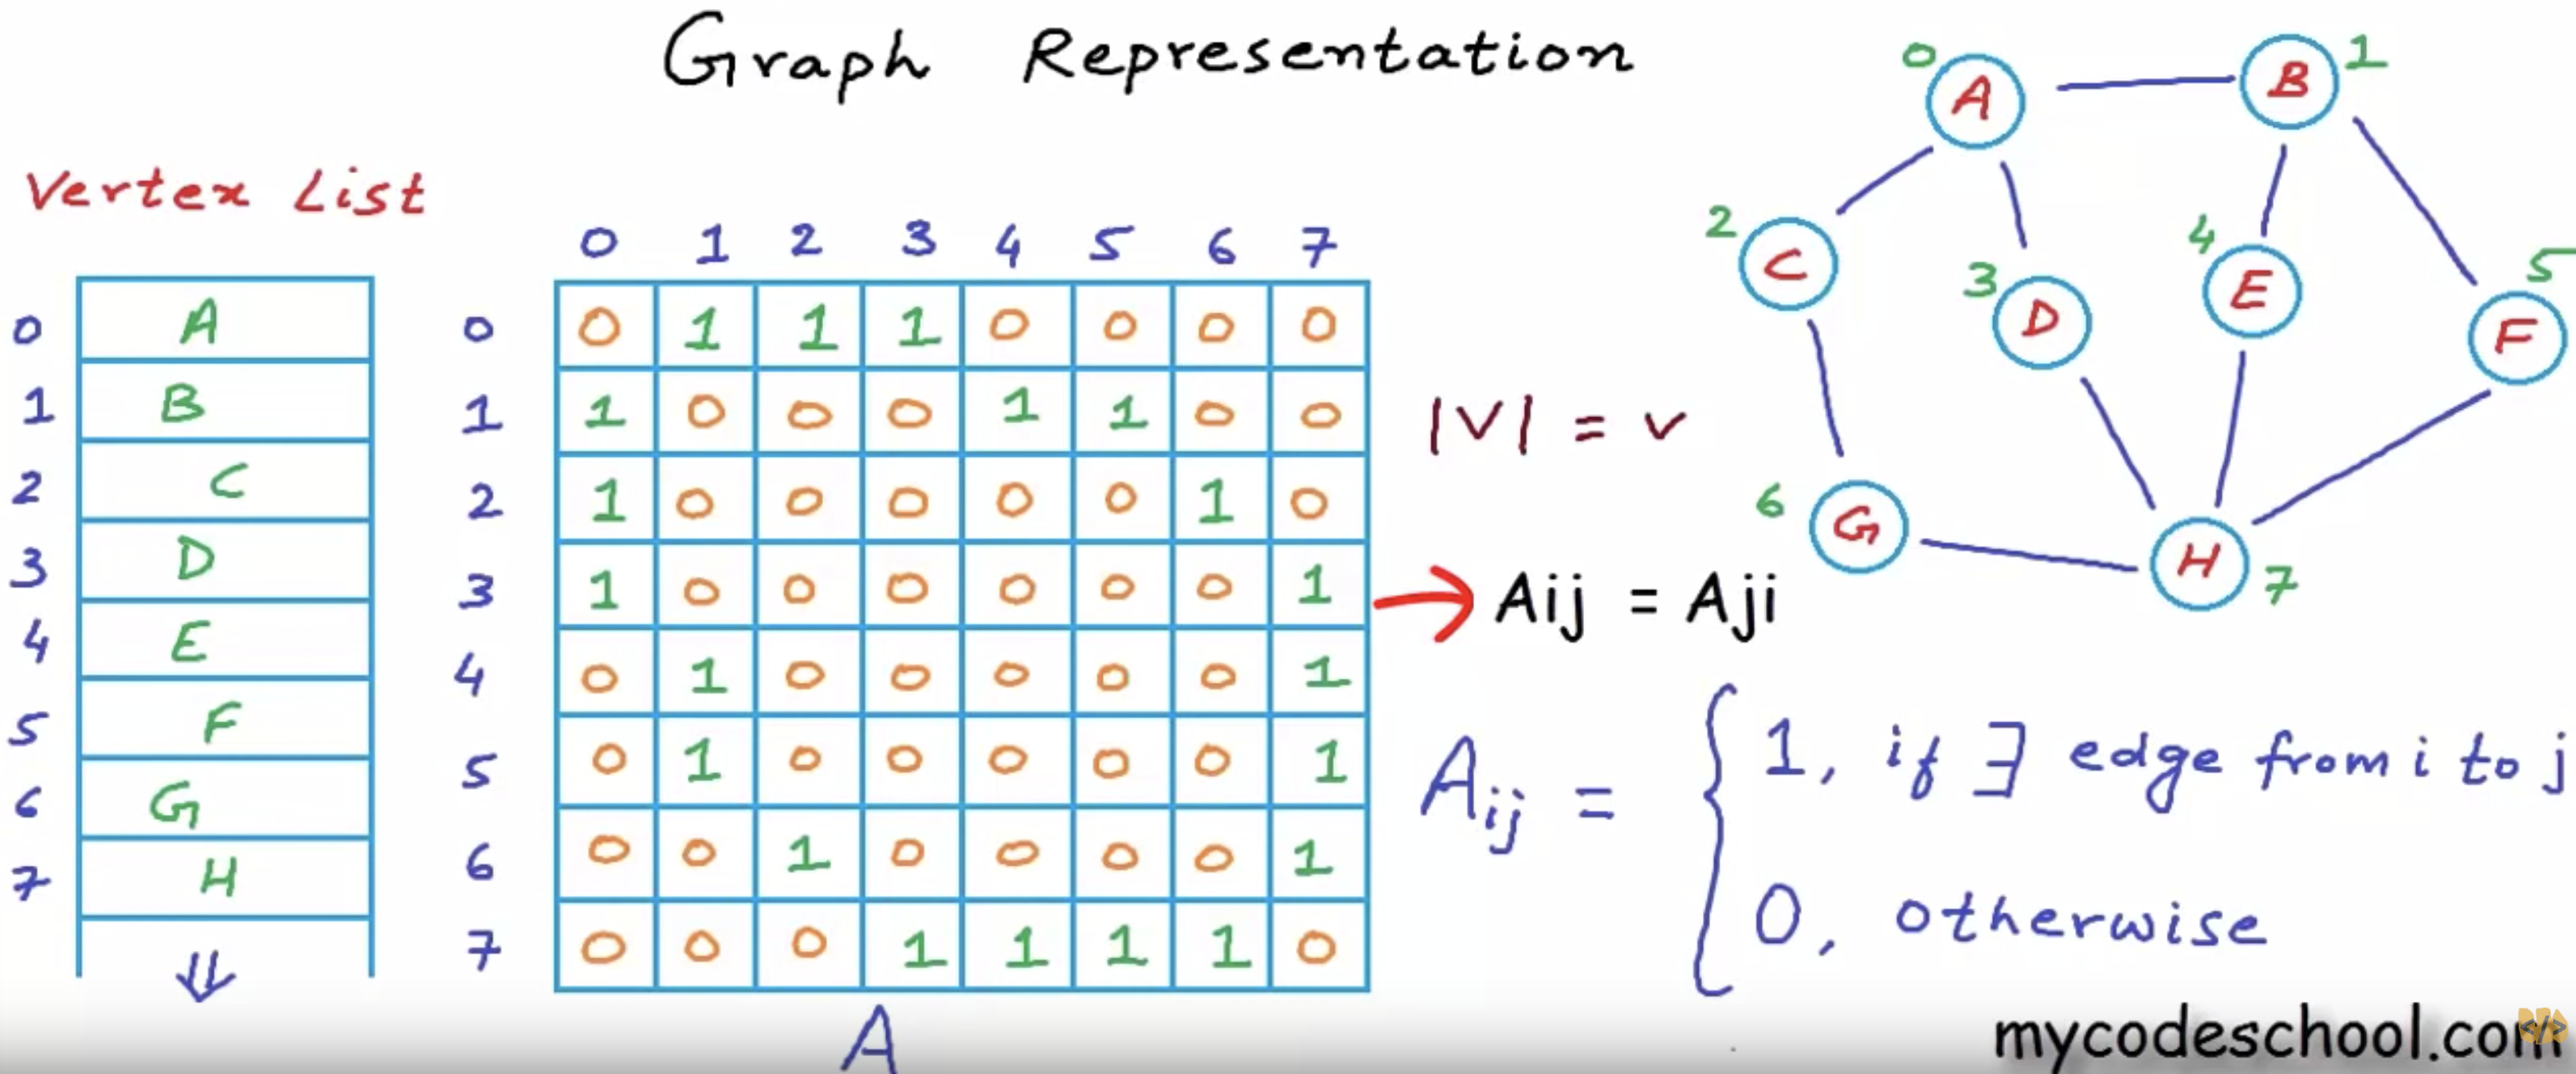 Graph Representation
Vertex List
0 A
1 B
2 C
3 D
4 E
5 F
6 G
7 H
0 1 2 3 4 5 6 7
0 0 1 1 1 0 0 0 0
1 1 0 0 0 1 1 0 0
2 1 0 0 0 0 0 1 0
3 1 0 0 0 0 0 0 1
4 0 1 0 0 0 0 0 1
5 0 1 0 0 0 0 0 1
6 0 0 1 0 0 0 0 1
7 0 0 0 1 1 1 1 0
A
|V| = v
Aij = Aji
Aij =
1, if ∃ edge from i to j
0, otherwise
0 A
B 1
2 C
3 D
4 E
5 F
6 G
H 7
mycodeschool.com